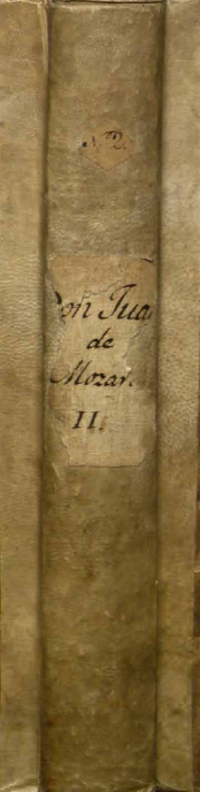 Nº 2.
Don Jua
de
Mozar
II.